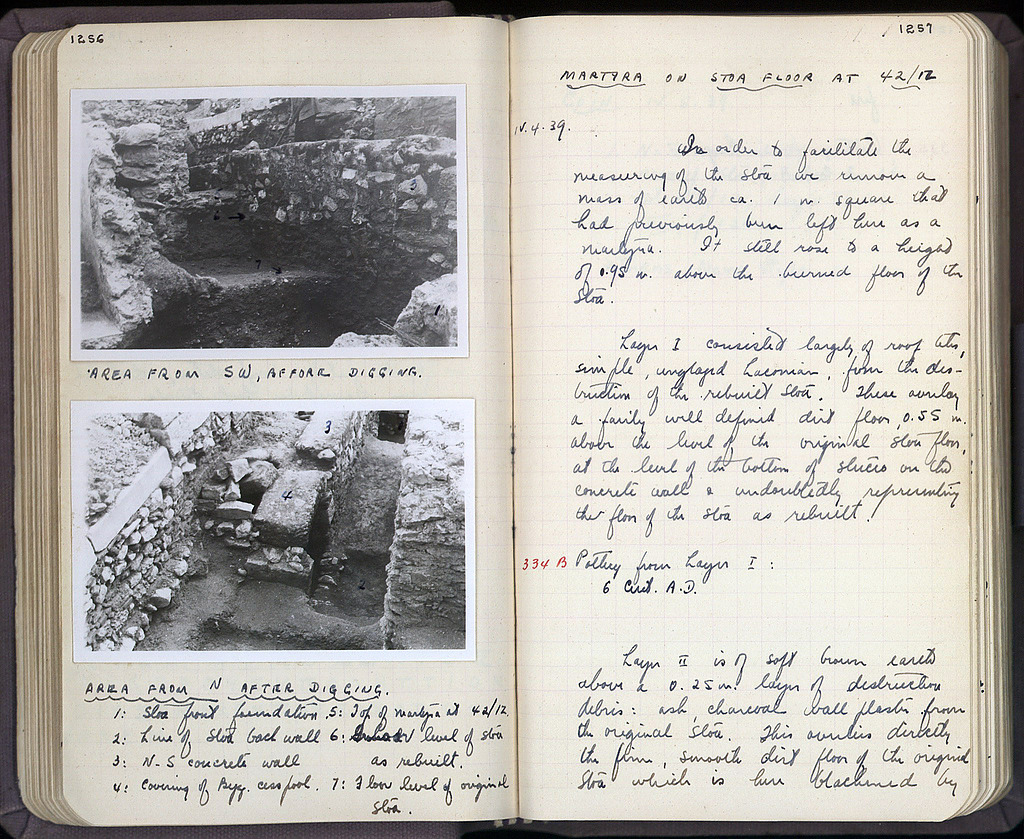 1256
AREA FROM SW, BEFORE DIGGING.
3
6 →
7 →
1
3
4
2
AREA FROM N AFTER DIGGING.
1: Stoa front foundation 5: Top of martyra at 42/ΙΖ
2: Line of Stoa back wall 6: level of stoa
3: N-S concrete wall as rebuilt.
4: Covering of Byz. cesspool. 7: Floor level of original
Stoa.
1257
MARTYRA ON STOA FLOOR AT 42/ΙΖ
IV.4.39.
In order to facilitate the
measuring of the Stoa we remove a
mass of earth ca. 1 m. square that
had previously been left here as a
martyra. It still rose to a height
of 0.95 m. above the burned floor of the
Stoa.
Layer I consisted largely of roof tiles,
simple, unglazed Laconian, from the des-
truction of the rebuilt Stoa. These overlay
a fairly well defined dirt floor, 0.55 m.
above the level of the original stoa floor,
at the level of the bottom of stucco on the
concrete wall & undoubtedly representing
the floor of the Stoa as rebuilt.
334 B Pottery from Layer I:
6 Cent. A.D.
Layer II is of soft brown earth
above a 0.25 m. layer of destruction
debris: ash, charcoal wall plaster from
the original Stoa. This overlies directly
the firm, smooth dirt floor of the original
Stoa which is here blackened by